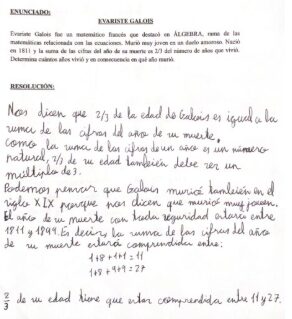 ENUNCIADO:
EVARISTE GALOIS
Evariste Galois fue un matemático francés que destacó en ÁLGEBRA, rama de las
matemáticas relacionada con las ecuaciones. Murió muy joven en un duelo amoroso. Nació
en 1811 y la suma de las cifras del año de su muerte es 2/3 del número de años que vivió.
Determina cuántos años vivió y en consecuencia en qué año murió.
RESOLUCIÓN:
Nos dicen que 2/3 de la edad de Galois es igual a la
suma de las cifras del año de su muerte.
Como la suma de las cifras de un año es un número
natural, 2/3 de su edad también debe ser un
múltiplo de 3.
Podemos pensar que Galois murió también en el
siglo XIX porque nos dicen que murió muy joven.
El año de su muerte con toda seguridad estará entre
1811 y 1899. Es decir, la suma de las cifras del año
de su muerte estará comprendida entre:
1+8+1+1=11
1+8+9+9=27
2/3 de su edad tiene que estar comprendida entre 11 y 27.